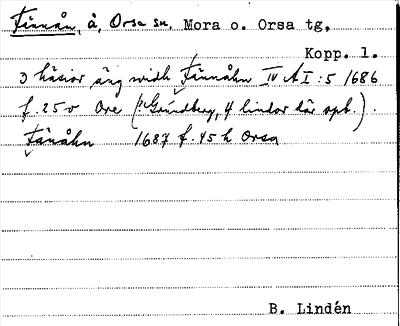 Finnån, å, Orsa sn, Mora o. Orsa tg,
Kopp. l.
3 häsior äng widh Finnåhn IV A I:5 1686
f. 25 v Ore ( Gründberg, 4 lindor där spt.).
Finåhn 1687 f. 45 h Orsa
B. Lindén